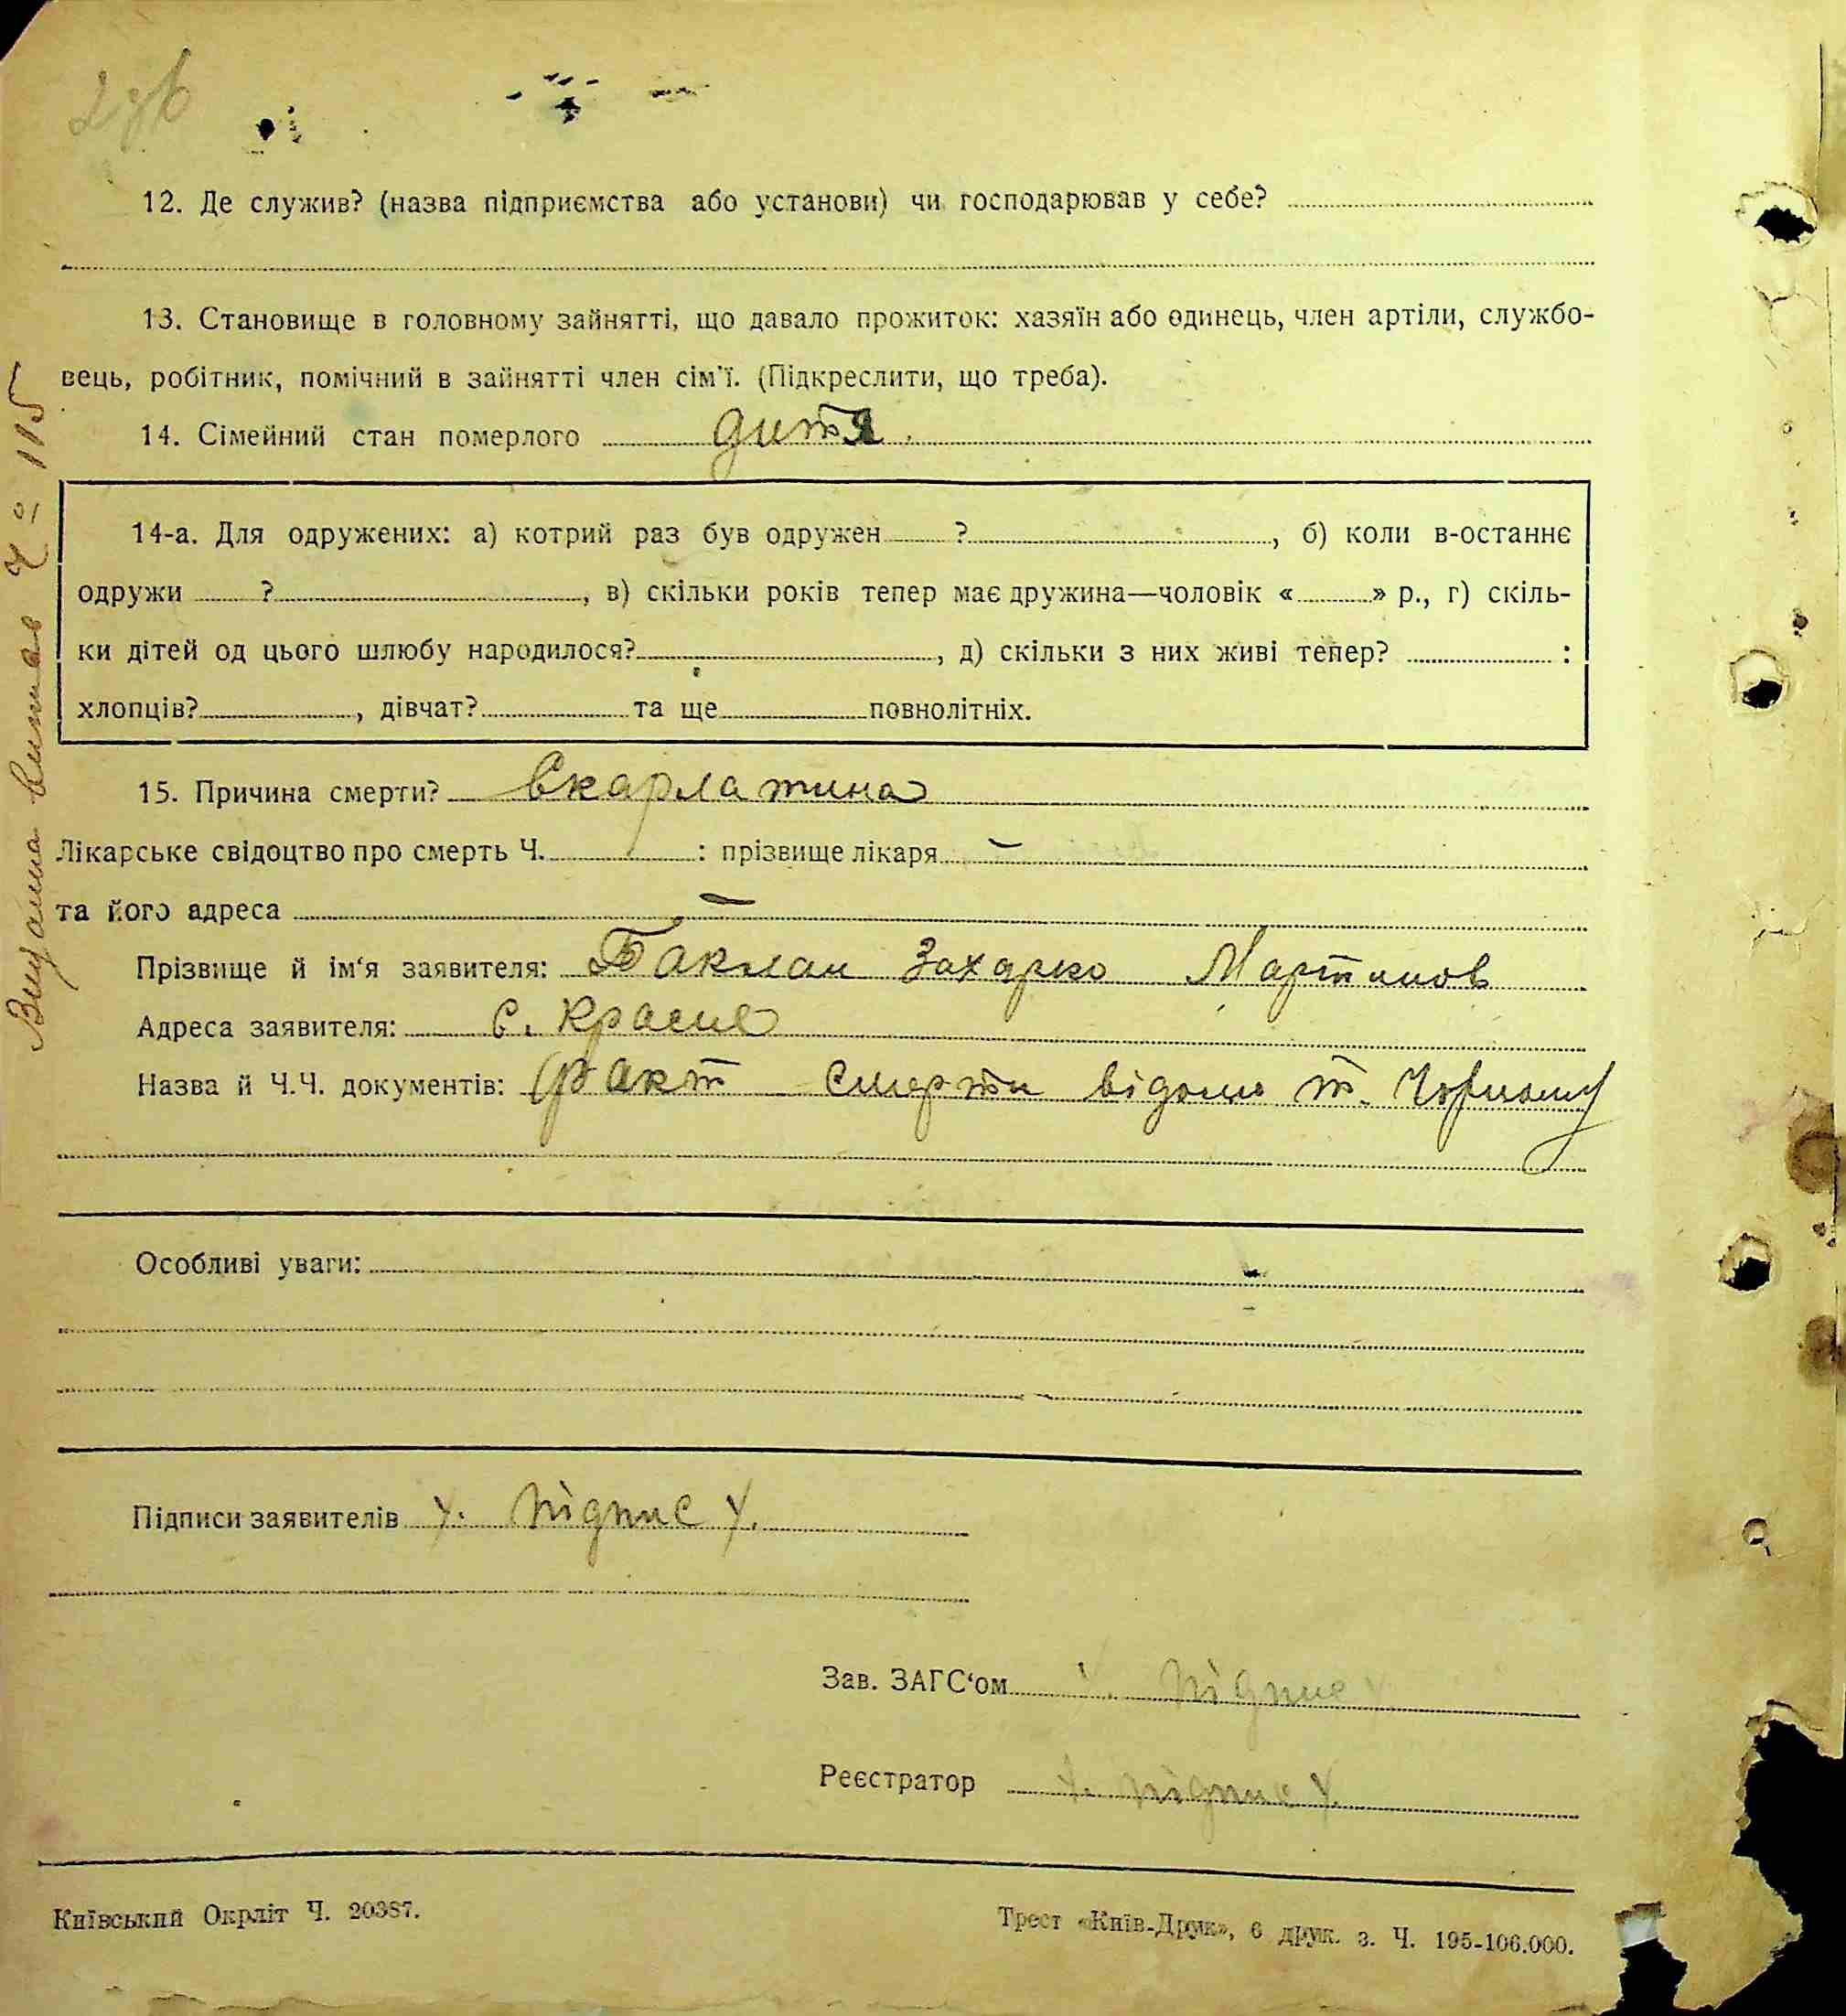 12. Де служив? (назва підприємства або установи) чи господарював у себе?
13. Становище в головному зайнятті, що давало прожиток: хазяїн або одинець, член артіли, службо-
вець, робітник, помічний в зайнятті член сім'ї. (Підкреслити, що треба).
14. Сімейний стан померлого дитя.
14-а. Для одружених: а) котрий раз був одружен ?, б) коли в-останнє
одружи ?, в) скільки років тепер має дружина—чоловік « » р., г) скіль-
ки дітей од цього шлюбу народилося?, д) скільки з них живі тепер? :
хлопців?, дівчат? та ще повнолітніх.
15. Причина смерти? Скарлатина
Лікарське свідоцтво про смерть Ч. : прізвище лікаря —
та його адреса —
Прізвище й ім'я заявителя: Баклан Захарко Мартинов
Адреса заявителя: с. Красне
Назва й Ч.Ч. документів: факт смерти відомо т. Чорному
Особливі уваги:
Підписи заявителів підпис
Зав. ЗАГС'ом підпис
Реєстратор підпис
Київський Окрліт Ч. 20387.
Трест «Київ-Друк», 6 друк. з. Ч. 195-106.000.
Видано витяг Ч 115